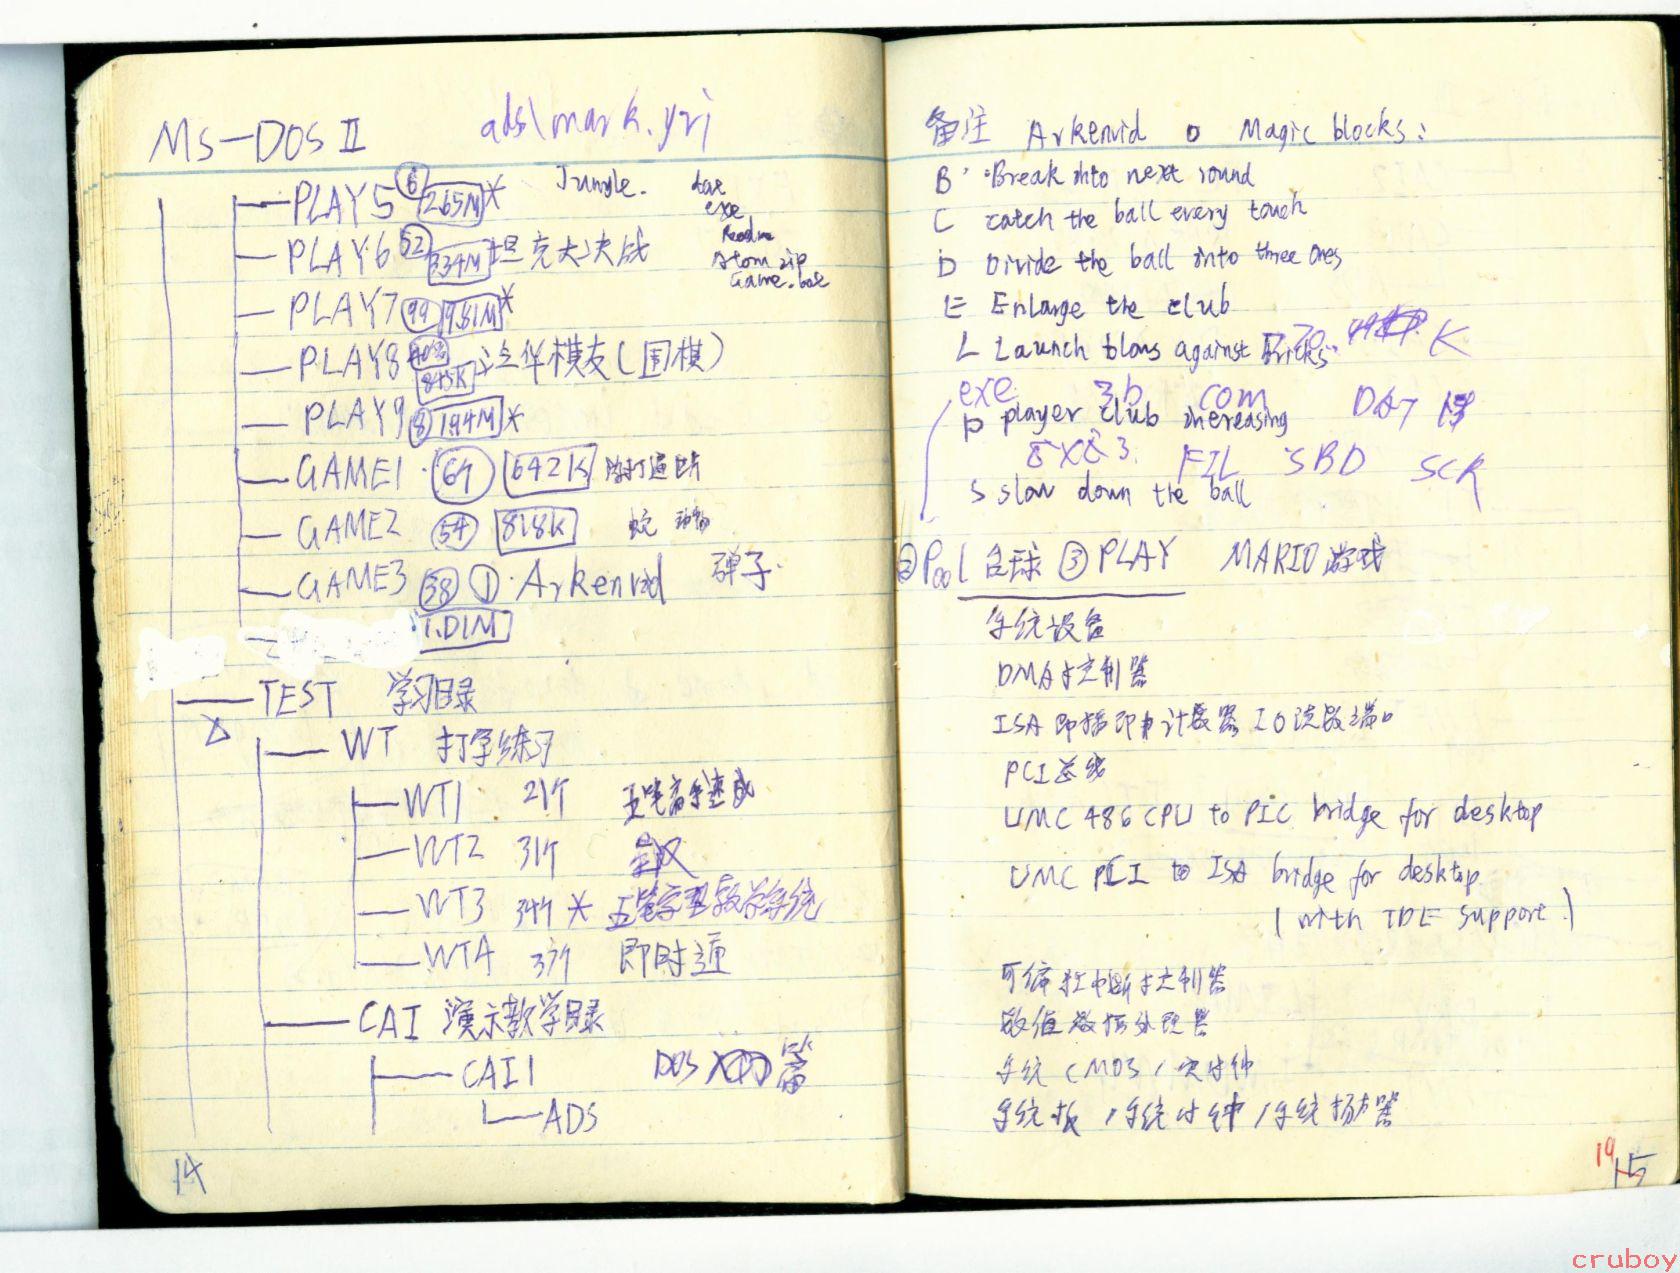 MS-DOS II ads\mark.yzj
PLAY5 6 2.65M * Jungle. dat
exe
PLAY6 52 坦克大决战
Atom zip
Game.bat
PLAY7 99 9.81M *
PLAY8 845K 立华棋友(围棋)
PLAY9 8 1.94M *
GAME1 64 642K
GAME2 54 818K 蛇 动物
GAME3 38 ① Arkenoid 弹子
1.01M
TEST 学习目录
WT 打字练习
WT1 21个 五笔高手速成
WT2 31个
WT3 34个 * 五笔字型教学系统
WT4 37个 即时通
CAI 演示教学目录
CAI1 DOS 篇
ADS
14
备注 Arkenoid Magic blocks:
B Break into next round
C catch the ball every touch
D Divide the ball into three ones
E Enlarge the club
L Launch blows against Bricks K
exe com DAT
P player club increasing
FIL SBD SCR
S slow down the ball
② Pool 台球 ③ PLAY MARIO 游戏
系统设备
DMA控制器
ISA即插即用计数器 IO读数端口
PCI总线
UMC 486 CPU to PIC bridge for desktop
UMC PCI to ISA bridge for desktop
(with IDE support)
可编程中断控制器
数值数据处理器
系统CMOS/实时钟
系统板/系统时钟/系统扬声器
19 15
cruboy